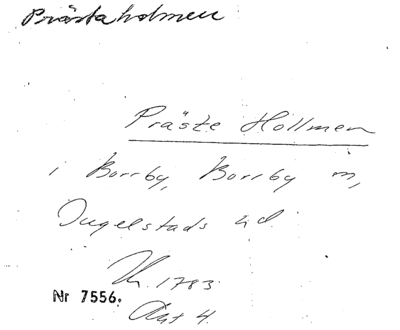 Prästaholmen
Präste Hollmen
i Borrby, Borrby m,
Ingelstads hd.
1783
Nr 7556.
Akt 4.